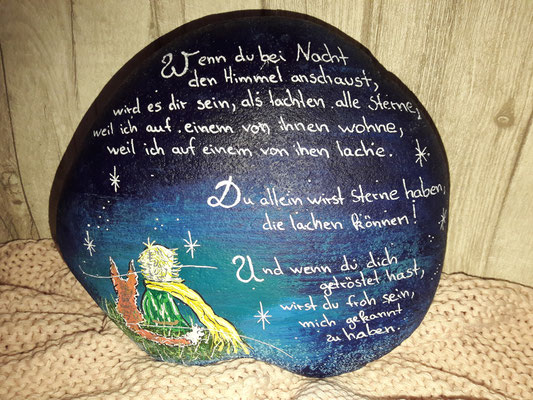 Wenn du bei Nacht
den Himmel anschaust,
wird es dir sein, als lachten alle Sterne,
weil ich auf einem von ihnen wohne,
weil ich auf einem von ihen lache.
Du allein wirst Sterne haben,
die lachen können!
Und wenn du dich
getröstet hast,
wirst du froh sein,
mich gekannt
zu haben.